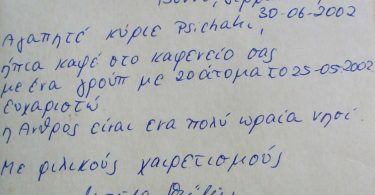 30-06-2002
Αγαπητέ κύριε Psichaki,
ήπια καφέ στο καφενείο σας
με ένα γρούπ με 20 άτομα το 25-05-2002
ευχαριστώ
η Άνθρος είναι ενα πολύ ωραία νησί.
Με φιλικούς χαιρετισμούς